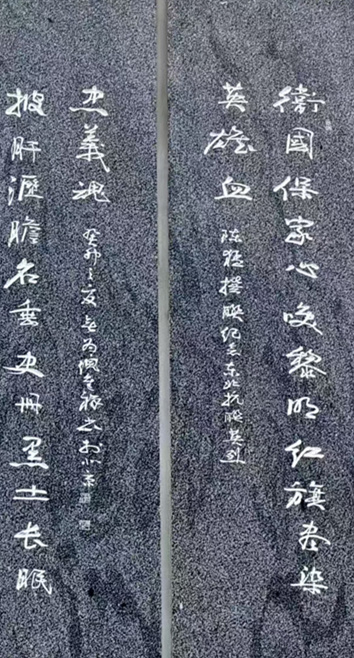 衛國保家心唤黎明红旗尽染
英雄血
陈猛撰联纪念东北抗联英烈
披肝瀝膽名垂史册黑土长眠
忠義魂
癸卯之夏